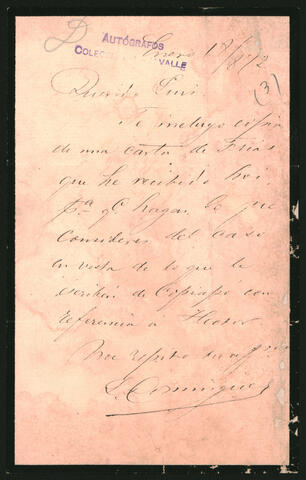 D
AUTÓGRAFOS
VALLE
Enero 17/
(3)
Querido Luis
Te incluyo copia
de una carta de Frias
que he recibido hoi,
pª qe hagas lo que
consideres del caso
en vista de lo que te
escriben de Copiapo con
referencia a
Me repito tu
L. Dominguez